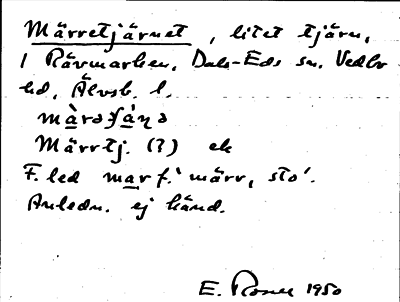 Märretjärnet, litet tjärn,
i Rävmarken, Dals-Eds sn, Vedbo
hd, Älvsb. l.
Märrtj. (?) ek
F. led mar f. 'märr, sto'.
Anledn. ej känd.
E. 1950